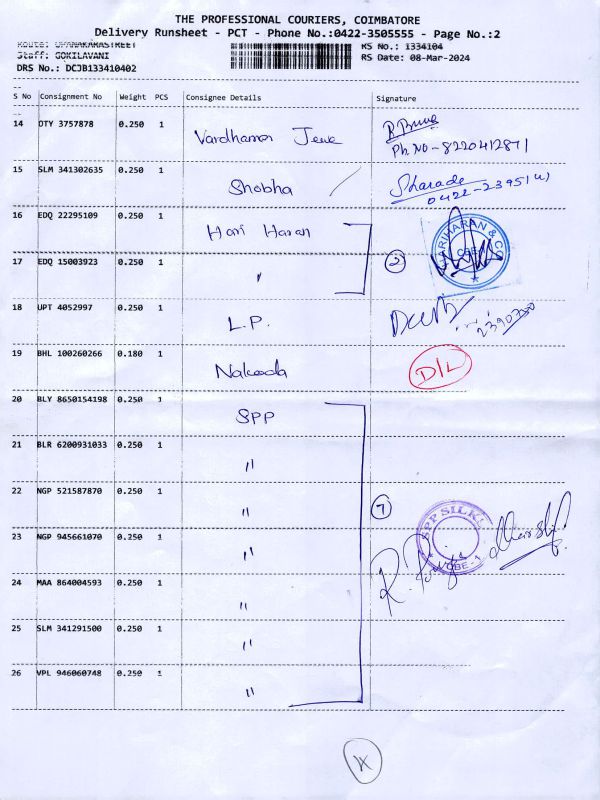 THE PROFESSIONAL COURIERS, COIMBATORE
Delivery Runsheet - PCT - Phone No.:0422-3505555 - Page No.:2
Staff: GOKILAVANI RS No.: 1334104
DRS No.: DCJB133410402 RS Date: 08-Mar-2024
S No Consignment No Weight PCS Consignee Details Signature
14 DTY 3757878 0.250 1 Vardhaman
Ph.No-8220412871
15 SLM 341302635 0.250 1 Shobha Sharade
16 EDQ 22295109 0.250 1 Hari Haran HARIHARAN & CO
17 EDQ 15003923 0.250 1 " 2
18 UPT 4052997 0.250 1 L.P.
19 BHL 100260266 0.180 1 Nakoda D/L
20 BLY 8650154198 0.250 1 SPP
21 BLR 6200931033 0.250 1 "
22 NGP 521587870 0.250 1 " 7 SPP SILKS
23 NGP 945661070 0.250 1 " CBE-1
24 MAA 864004593 0.250 1 "
25 SLM 341291500 0.250 1 "
26 VPL 946060748 0.250 1 "